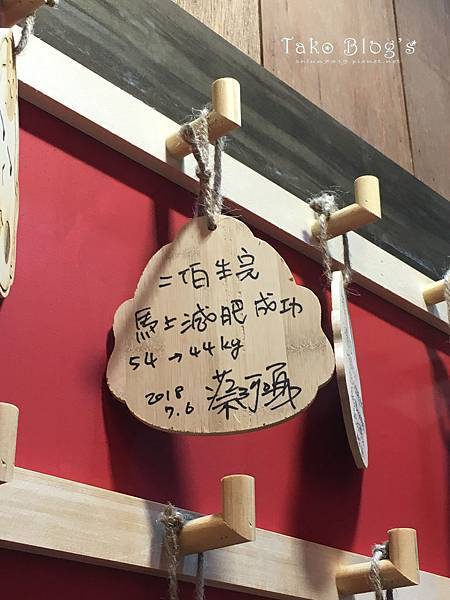 Tako Blog's
二宝生完
馬上減肥成功
54→44kg
2018
7.6